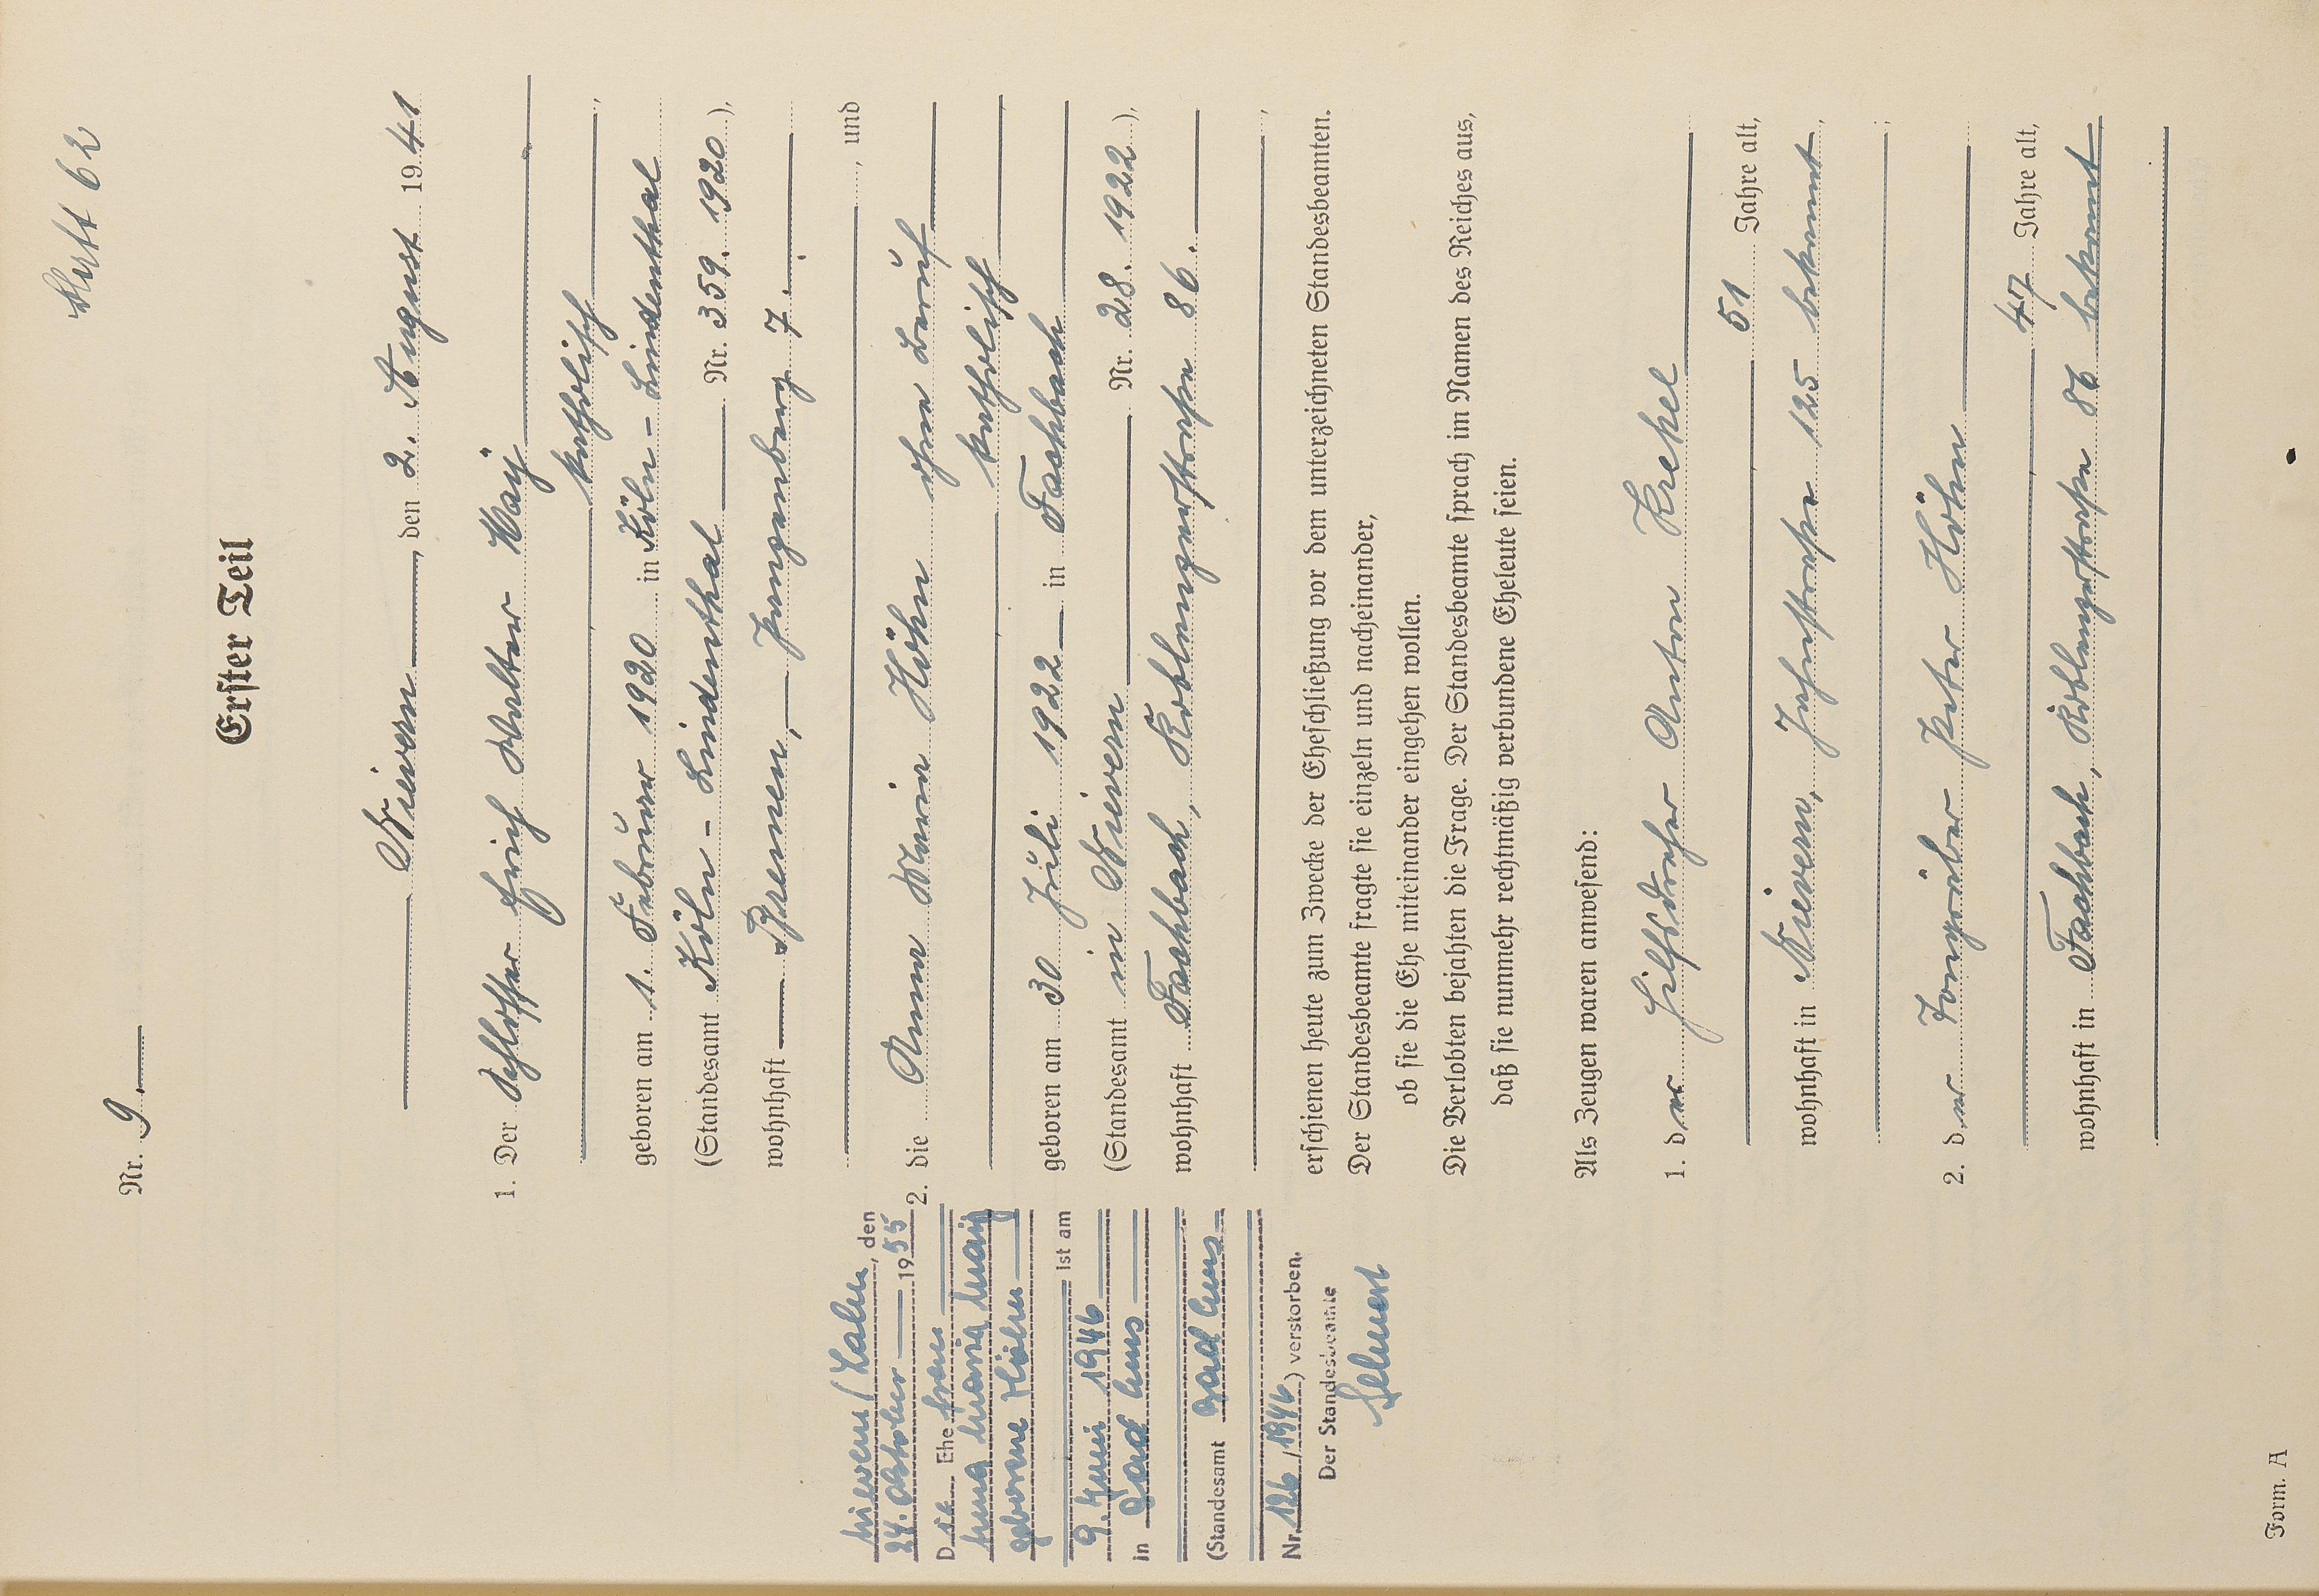 Blatt 62
Nr. 9.
Erster Teil
Nievern, den 2. August 1941
1. Der Schlosser Erich Walter Maÿ
katholisch,
geboren am 1. Februar 1920 in Köln-Lindenthal
(Standesamt Köln-Lindenthal Nr. 359. 1920),
wohnhaft Bremen, Pungenberg 7.
, und
2. die Anna Maria Höhn ohne Beruf
katholisch
geboren am 30 Juli 1922 in Fachbach
(Standesamt in Nievern Nr. 28. 1922),
wohnhaft Fachbach, Koblenzerstraße 86.
,
erschienen heute zum Zwecke der Eheschließung vor dem unterzeichneten Standesbeamten.
Der Standesbeamte fragte sie einzeln und nacheinander,
ob sie die Ehe miteinander eingehen wollen.
Die Verlobten bejahten die Frage. Der Standesbeamte sprach im Namen des Reiches aus,
daß sie nunmehr rechtmäßig verbundene Eheleute seien.
Als Zeugen waren anwesend:
1. der Hilfsdreher Anton Krekel
51 Jahre alt,
wohnhaft in Nievern, Jahnstraße 125 bekannt,
;
2. der Tongräber Peter Höhn
47 Jahre alt,
wohnhaft in Fachbach, Koblenzerstraße 86 bekannt
Nievern/Lahn, den
24. Oktober 1955
Die Ehefrau
Anna Maria Maÿ
geborene Höhn
ist am
9. Juni 1946
in Bad Ems
(Standesamt Bad Ems
Nr. 126/1946) verstorben.
Der Standesbeamte
Form. A